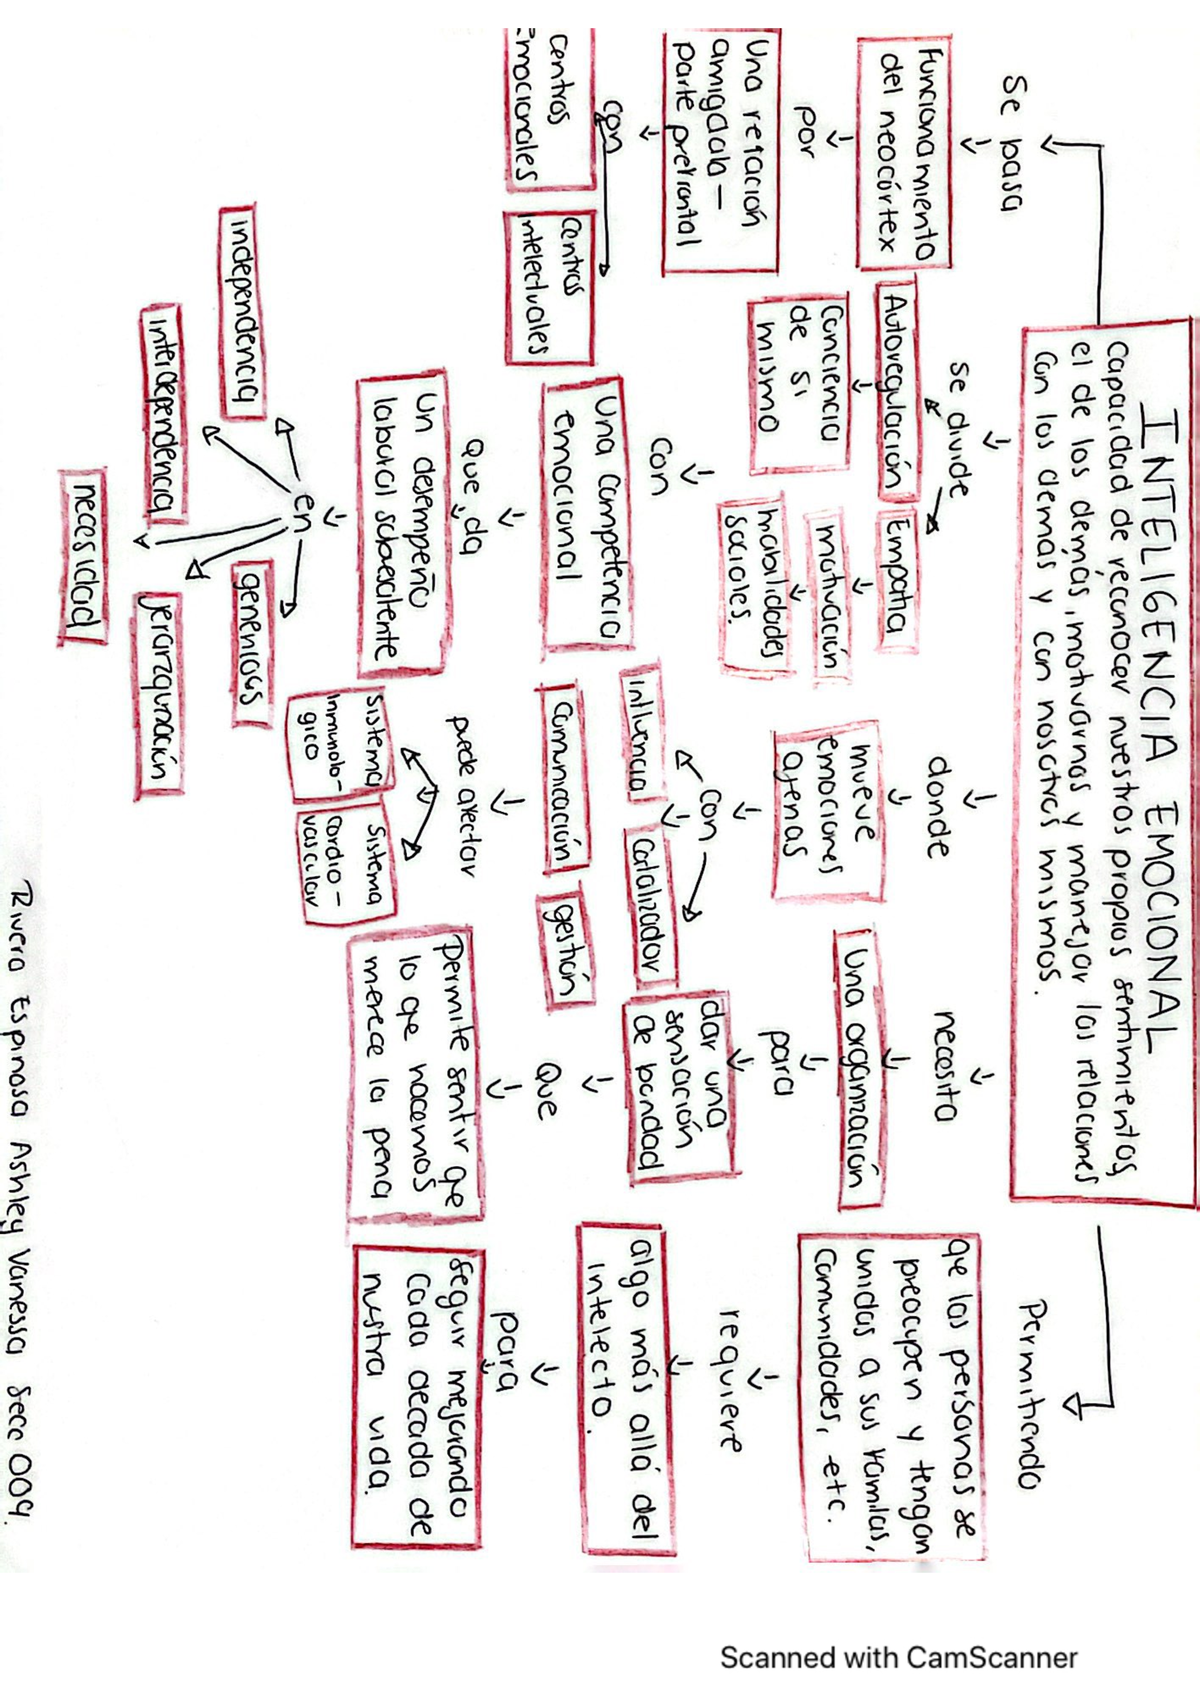 INTELIGENCIA EMOCIONAL
Capacidad de reconocer nuestros propios sentimientos,
el de los demás, motivarnos y manejar las relaciones
con los demás y con nosotros mismos.
Se basa
Funcionamiento
del neocórtex
por
Una relación
amigdala –
parte prefrontal
con
centros
Emocionales
Centros
Intelectuales
se divide
Autoregulación
Conciencia
de si
mismo
Empatia
motivación
habilidades
sociales.
con
Una competencia
emocional
que da
Un desempeño
laboral sobresaliente
en
independencia
interdependencia
necesidad
jerarzquización
donde
mueve
emociones
ajenas
con
Influencia
Catalizador
Comunicación
gestión
puede afectar
Sistema
inmunolo-
gico
Sistema
Cardio-
vascular
necesita
Una organización
para
dar una
sensación
de bondad
Que
Permite sentir qe
lo qe hacemos
merece la pena
Permitiendo
qe las personas se
preocupen y tengan
unidas a sus familas,
comunidades, etc.
requiere
algo más allá del
intelecto.
para
seguir mejorando
cada decada de
nustra vida.
Rivera Espinosa Ashley Vanessa Secc 009.
Scanned with CamScanner